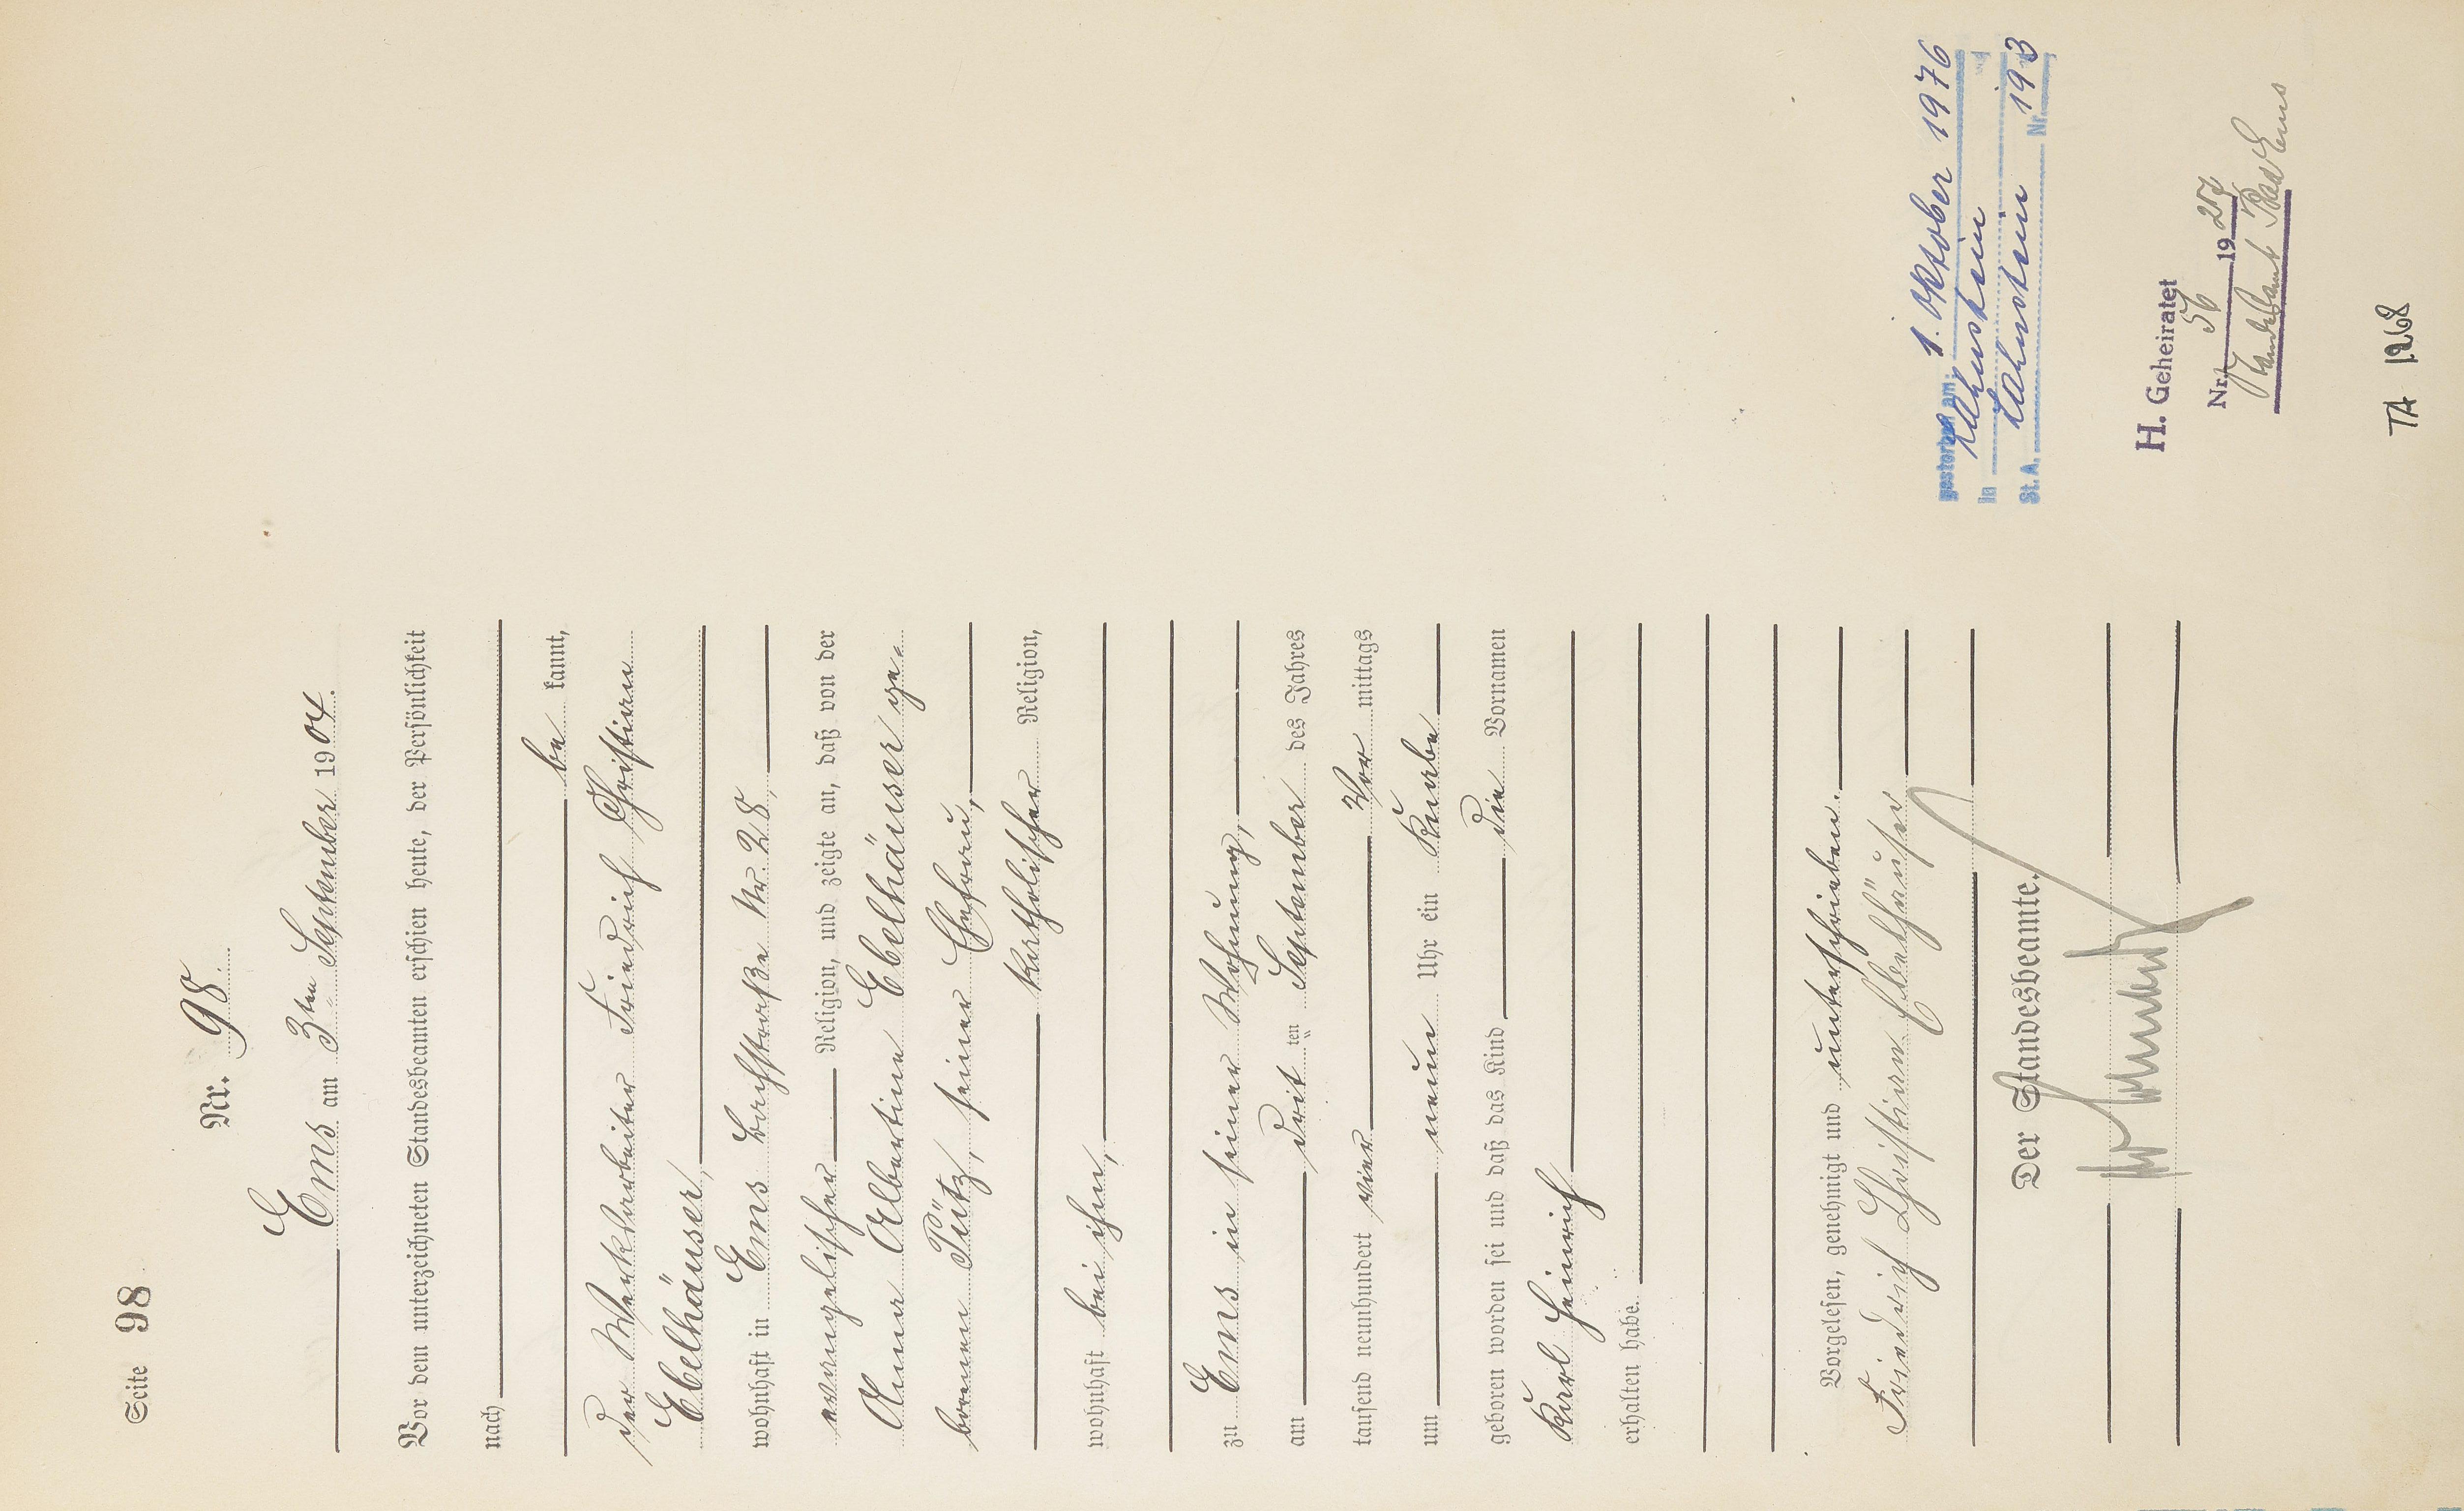 Seite 98
Nr. 98.
Ems am 3ten September 1904.
Vor dem unterzeichneten Standesbeamten erschien heute, der Persönlichkeit
nach
be kannt,
der Werksarbeiter Friedrich Christian
Ebelhäuser,
wohnhaft in Ems Bachstraße Nr. 28,
evangelischer Religion, und zeigte an, daß von der
Anna Albertine Ebelhäuser ge-
borenen Pütz, seiner Ehefrau,
katholischer Religion,
wohnhaft bei ihm,
zu Ems in seiner Wohnung,
am drit ten September des Jahres
tausend neunhundert vier Vor mittags
um neun Uhr ein Knabe
geboren worden sei und daß das Kind die Vornamen
Karl Heinrich
erhalten habe.
Vorgelesen, genehmigt und unterschrieben.
Friedrich Christian Ebelhäuser
Der Standesbeamte.
gestorben am: 1. Oktober 1976
in Lahnstein
St. A. Lahnstein Nr. 193
H. Geheiratet
Nr. 56 1927
Standesamt Bad Ems
TA 1268